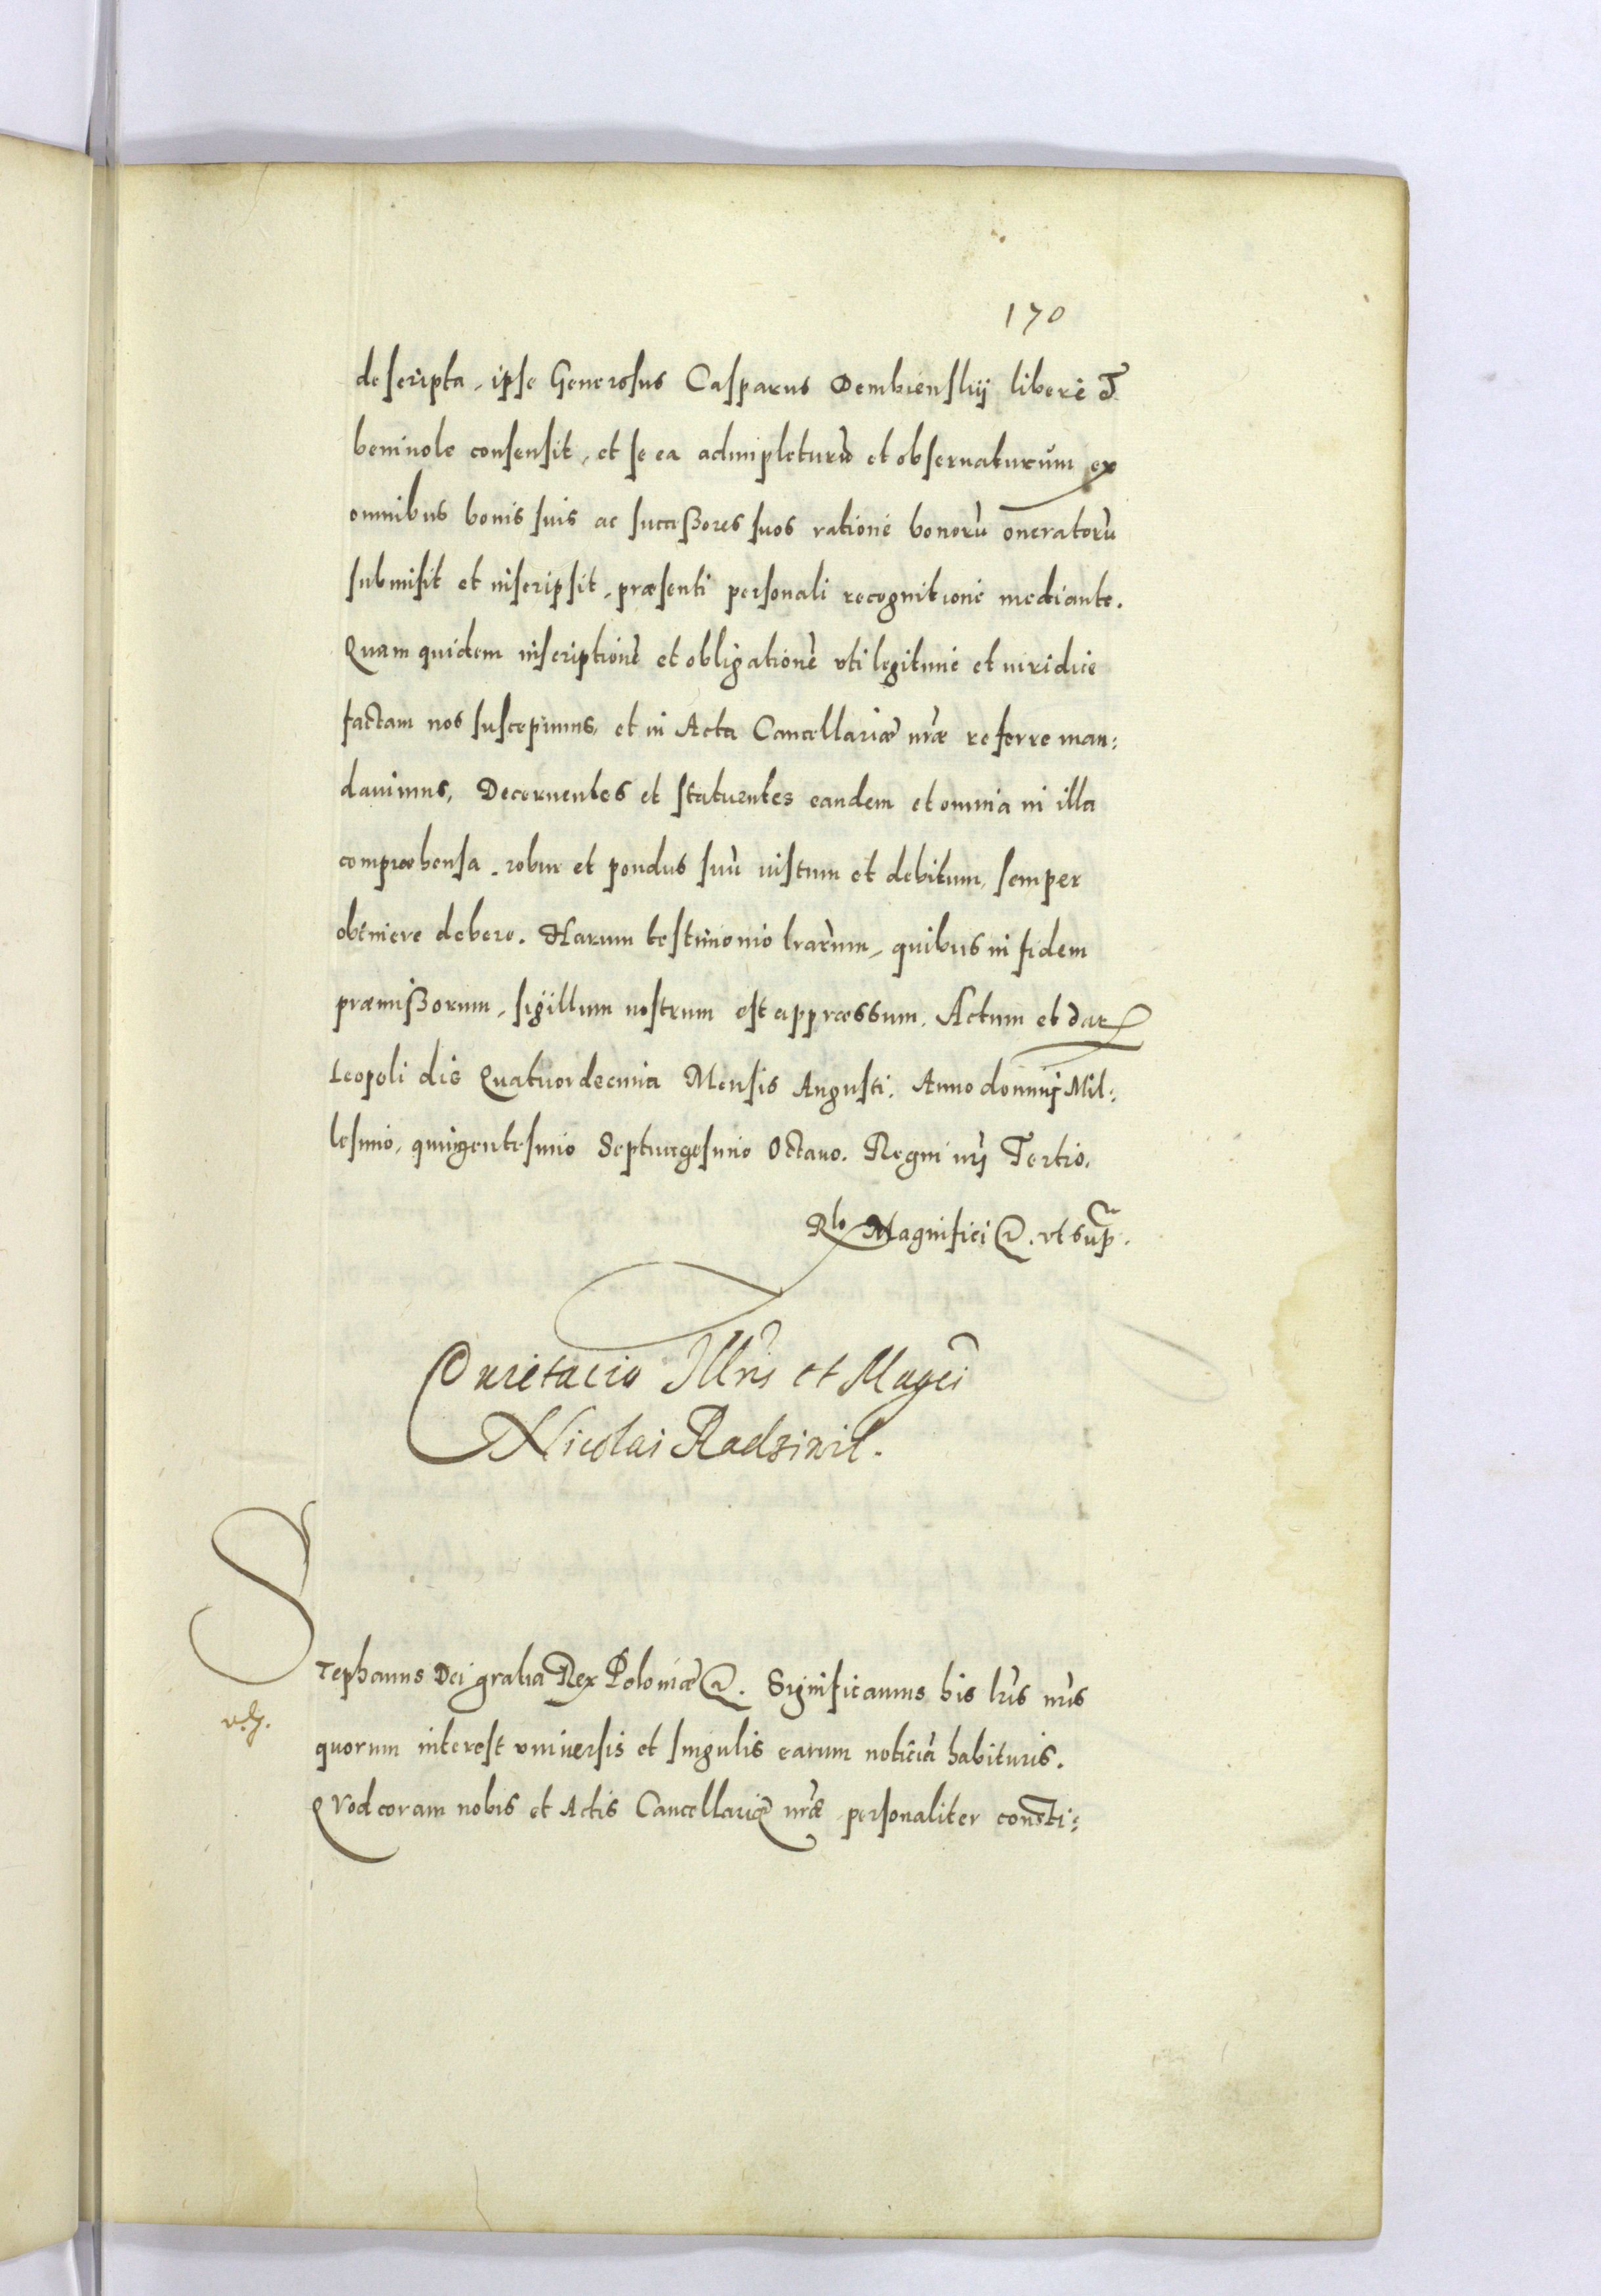 170
descripta, ipse Generosus Casparus Dembienskij libere et
beniuole consensit, et se ea adimpleturũ et obseruaturum ex
omnibus bonis suis ac succeßores suos ratione bonorũ oneratorũ
submisit et inscripsit, præsenti personali recognitione mediante.
Quam quidem inscriptionẽ et obligationẽ vti legitime et iuridice
factam nos suscepimus, et in Acta Cancellariæ nr̃æ referre man:
dauimus, Decernentes et statuentes eandem et omnia in illa
compræhensa, robur et pondus suũ iustum et debitum, semper
obtinere debere. Harum testimonio lr̃arum, quibus in fidem
præmißorum, sigillum nostrum est appressum. Actum et dat
Leopoli die Quatuordecima Mensis Augusti. Anno domini Mil:
lesimo, quingentesimo Septuagesimo Octauo. Regni nr̃i Tertio.
Rlo Magnifici etc. vt sup̃.
Illr̃is et Magci
Nicolai Radziwil.
Stephanus Dei gratia Rex Poloniæ etc. Significamus his lr̃is nr̃is
quorum interest vniuersis et singulis earum noticiã habituris.
Quod coram nobis et Actis Cancellariæ nr̃æ personaliter consti: